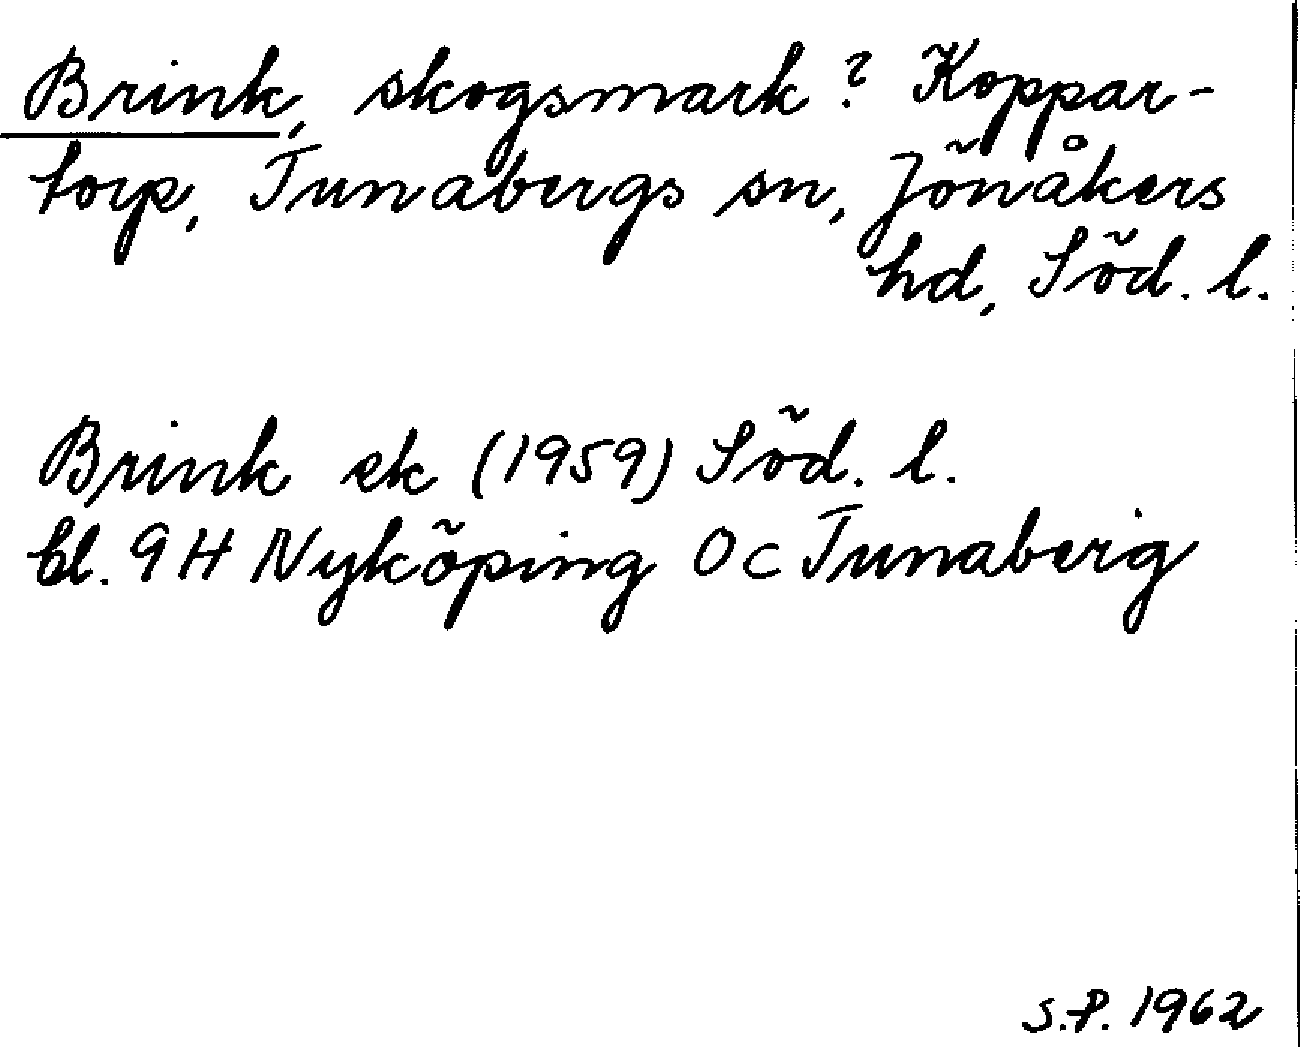 Brink, skogsmark? Koppar-
torp, Tunabergs sn, Jönåkers
hd, Söd. l.
Brink ek (1959) Söd. l.
bl. 9H Nyköping Oc Tunaberg
S.P. 1962